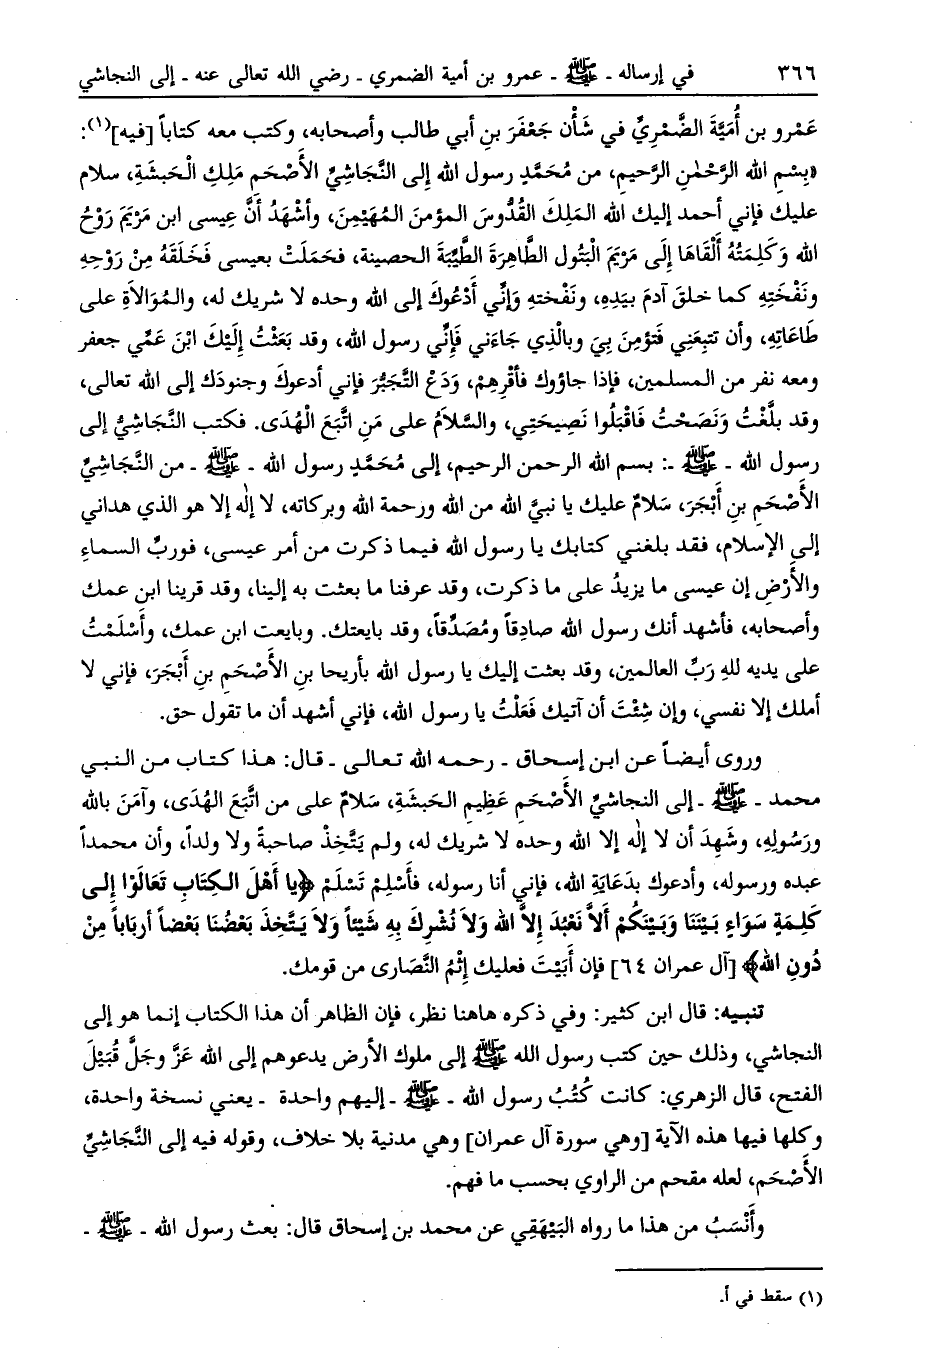 ٣٦٦ في إرساله - ﷺ - عمرو بن أمية الضمري - رضي الله تعالى عنه - إلى النجاشي
عَمْرو بن أُمَيَّةَ الضَّمْرِيَّ في شَأْن جَعْفَرَ بنِ أبي طالب وأصحابه، وكتب معه كتاباً [فيه](١):
«بِسْمِ الله الرَّحْمٰنِ الرَّحيم، من مُحَمَّدٍ رسول الله إلى النَّجاشِيِّ الأَصْحَم مَلِكِ الْحَبشَةِ، سلام
عليك فإني أحمد إليك الله المَلِكَ القُدُّوسَ المؤمنَ المُهَيْمِنَ، وأشْهَدُ أنَّ عِيسى ابن مَرْيَمَ رَوْحُ
الله وَكَلِمَتُهُ أَلْقَاهَا إِلَى مَرْيَمَ الْبَتُول الطَّاهِرَةَ الطَّيِّبَةَ الحصينة، فحَمَلَتْ بعيسى فَخَلَقَهُ مِنْ رَوْحِهِ
ونَفْخَتِهِ كما خلقَ آدمَ بيَدِهِ، ونَفْختهِ وَإِنِّي أَدْعُوكَ إلى الله وحده لا شريك له، والمُوَالاَةِ على
طَاعَاتِهِ، وأن تتبِعَنِي فَتؤمِنَ بِيَ وبالْذِي جَاءَني فَإِنِّي رسول الله، وقد بَعَثْتُ إِلَيْكَ ابْنَ عَمِّي جعفر
ومعه نفر من المسلمين، فإذا جاؤوك فأقْرِهِمْ، وَدَعْ التَّجَبُّرَ فإني أدعوكَ وجنودَك إلى الله تعالى،
وقد بلَّغْتُ وَنَصَحْتُ فَاقْبَلُوا نَصِيحَتِي، والسَّلاَمُ على مَنِ اتَّبَعَ الْهُدَى. فكتب النَّجَاشِيُّ إلى
رسول الله - ﷺ -: بسم الله الرحمن الرحيم، إلى مُحَمَّدٍ رسول الله - ﷺ - من النَّجَاشِيِّ
الأَصْحَمِ بنِ أَبْجَرَ، سَلامٌ عليك يا نبيَّ الله من الله ورحمة الله وبركاته، لا إلٰه إلا هو الذي هداني
إلى الإسلام، فقد بلغني كتابك يا رسول الله فيما ذكرت من أمر عيسى، فوربِّ السماءِ
والأَرْضِ إن عيسى ما يزيدُ على ما ذكرت، وقد عرفنا ما بعثت به إلينا، وقد قرينا ابن عمك
وأصحابه، فأشهد أنك رسول الله صادِقاً ومُصَدِّقاً، وقد بايعتك. وبايعت ابن عمك، وأَسْلَمْتُ
على يديه للهِ رَبِّ العالمين، وقد بعثت إليك يا رسول الله بأريحا بنِ الأَصْحَمِ بنِ أَبْجَرَ، فإني لا
أملك إلا نفسي، وإن شِئْتَ أن آتيك فَعَلْتُ يا رسول الله، فإني أشهد أن ما تقول حق.
وروى أيضاً عن ابن إسحاق - رحمه الله تعالى - قال: هذا كتاب من النبي
محمد - ﷺ - إلى النجاشيِّ الأَصْحَمِ عَظِيمِ الحَبشَةِ، سَلامٌ على من اتَّبَعَ الهُدَى، وآمَنَ بالله
ورَسُولِهِ، وشَهِدَ أن لا إلٰه إلا الله وحده لا شريك له، ولم يَتَّخِذْ صاحبةً ولا ولداً، وأن محمداً
عبده ورسوله، وأدعوك بدَعَايَةِ الله، فإني أنا رسوله، فأَسْلِمْ تَسْلَمْ ﴿يا أَهْلَ الكِتَابِ تَعَالَوْا إِلى
كَلِمَةٍ سَوَاءٍ بَيْنَنَا وَبَيْنَكُمْ أَلاَّ نَعْبُدَ إِلاَّ الله وَلاَ نُشْرِكَ بِهِ شَيْئاً وَلاَ يَتَّخِذَ بَعْضُنَا بَعْضاً أرباباً مِنْ
دُونِ الله﴾ [آل عمران ٦٤] فإن أَبَيْتَ فعليك إِثْمُ النَّصَارى من قومك.
تنبيه: قال ابن كثير: وفي ذكره هاهنا نظر، فإن الظاهر أن هذا الكتاب إنما هو إلى
النجاشي، وذلك حين كتب رسول الله ﷺ إلى ملوك الأرض يدعوهم إلى الله عَزَّ وجَلَّ قُبَيْلَ
الفتح، قال الزهري: كانت كُتُبُ رسول الله - ﷺ - إليهم واحدة - يعني نسخة واحدة،
وكلها فيها هذه الآية [وهي سورة آل عمران] وهي مدنية بلا خلاف، وقوله فيه إلى النَّجَاشِيِّ
الأَصْحَم، لعله مقحم من الراوي بحسب ما فهم.
وأَنْسَبُ من هذا ما رواه البَيْهَقِي عن محمد بن إسحاق قال: بعث رسول الله - ﷺ -
(١) سقط في أ.